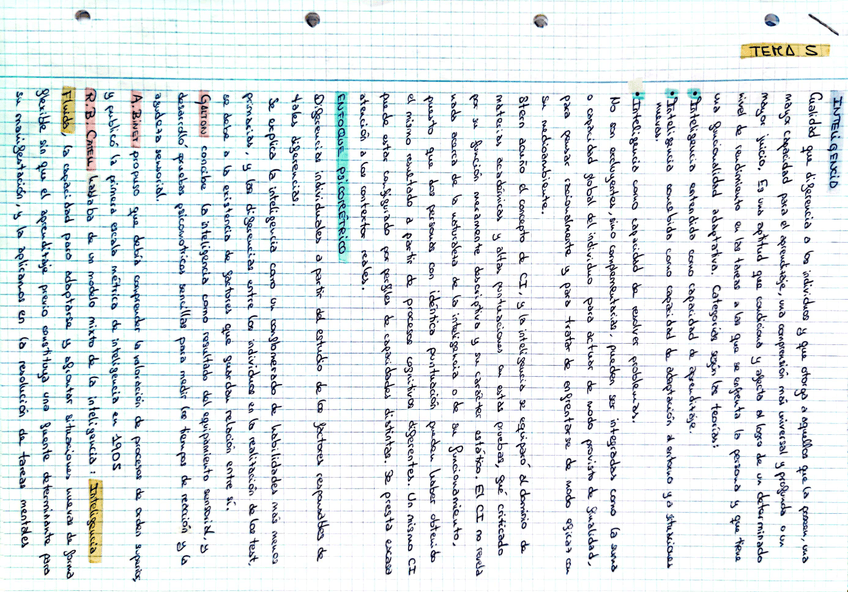 TEMA 5
INTELIGENCIA
Cualidad que diferencia a los individuos y que otorga a aquellos que la poseen, una
mayor capacidad para el aprendizaje, una comprensión más universal y profunda o un
mayor juicio. Es una aptitud que condiciona y afecta al logro de un determinado
nivel de rendimiento en las tareas a las que se enfrenta la persona y que tiene
una funcionalidad adaptativa. Categorías según las teorías:
• Inteligencia entendida como capacidad de aprendizaje.
• Inteligencia concebida como capacidad de adaptación al entorno y a situaciones
nuevas.
• Inteligencia como capacidad de resolver problemas.
No son excluyentes, sino complementarias, pueden ser integradas como la suma
o capacidad global del individuo para actuar de modo provisto de finalidad,
para pensar racionalmente y para tratar de enfrentarse de modo eficaz con
su medioambiente.
Stern acuñó el concepto de CI, y la inteligencia se equiparó al dominio de
materias académicas y altas puntuaciones en estas pruebas, fué criticado
por su función meramente descriptiva y su carácter estático. El CI no revela
nada acerca de la naturaleza de la inteligencia o de su funcionamiento,
puesto que dos personas con idéntica puntuación pueden haber obtenido
el mismo resultado a partir de procesos cognitivos diferentes. Un mismo CI
puede estar configurado por perfiles de capacidades distintas. Se presta escasa
atención a los contextos reales.
ENFOQUE PSICOMÉTRICO
Diferencias individuales a partir del estudio de los factores responsables de
tales diferencias.
Se explica la inteligencia como un conglomerado de habilidades más menos
primarias, y las diferencias entre los individuos en la realización de los test,
se debe a la existencia de factores que guardan relación entre sí.
Galton concibe la inteligencia como resultado del equipamiento sensorial, y
desarrolló pruebas psicomotrices sencillas para medir los tiempos de reacción y la
agudeza sensorial.
A. Binet, propuso que debía comprender la valoración de procesos de orden superior,
y publicó la primera escala métrica de inteligencia en 1905
R.B. Catell hablaba de un modelo mixto de la inteligencia. Inteligencia
Fluida, la capacidad para adaptarse y afrontar situaciones nuevas de forma
flexible sin que el aprendizaje previo constituya una fuente determinante para
su manifestación y la aplicamos en la resolución de tareas mentales